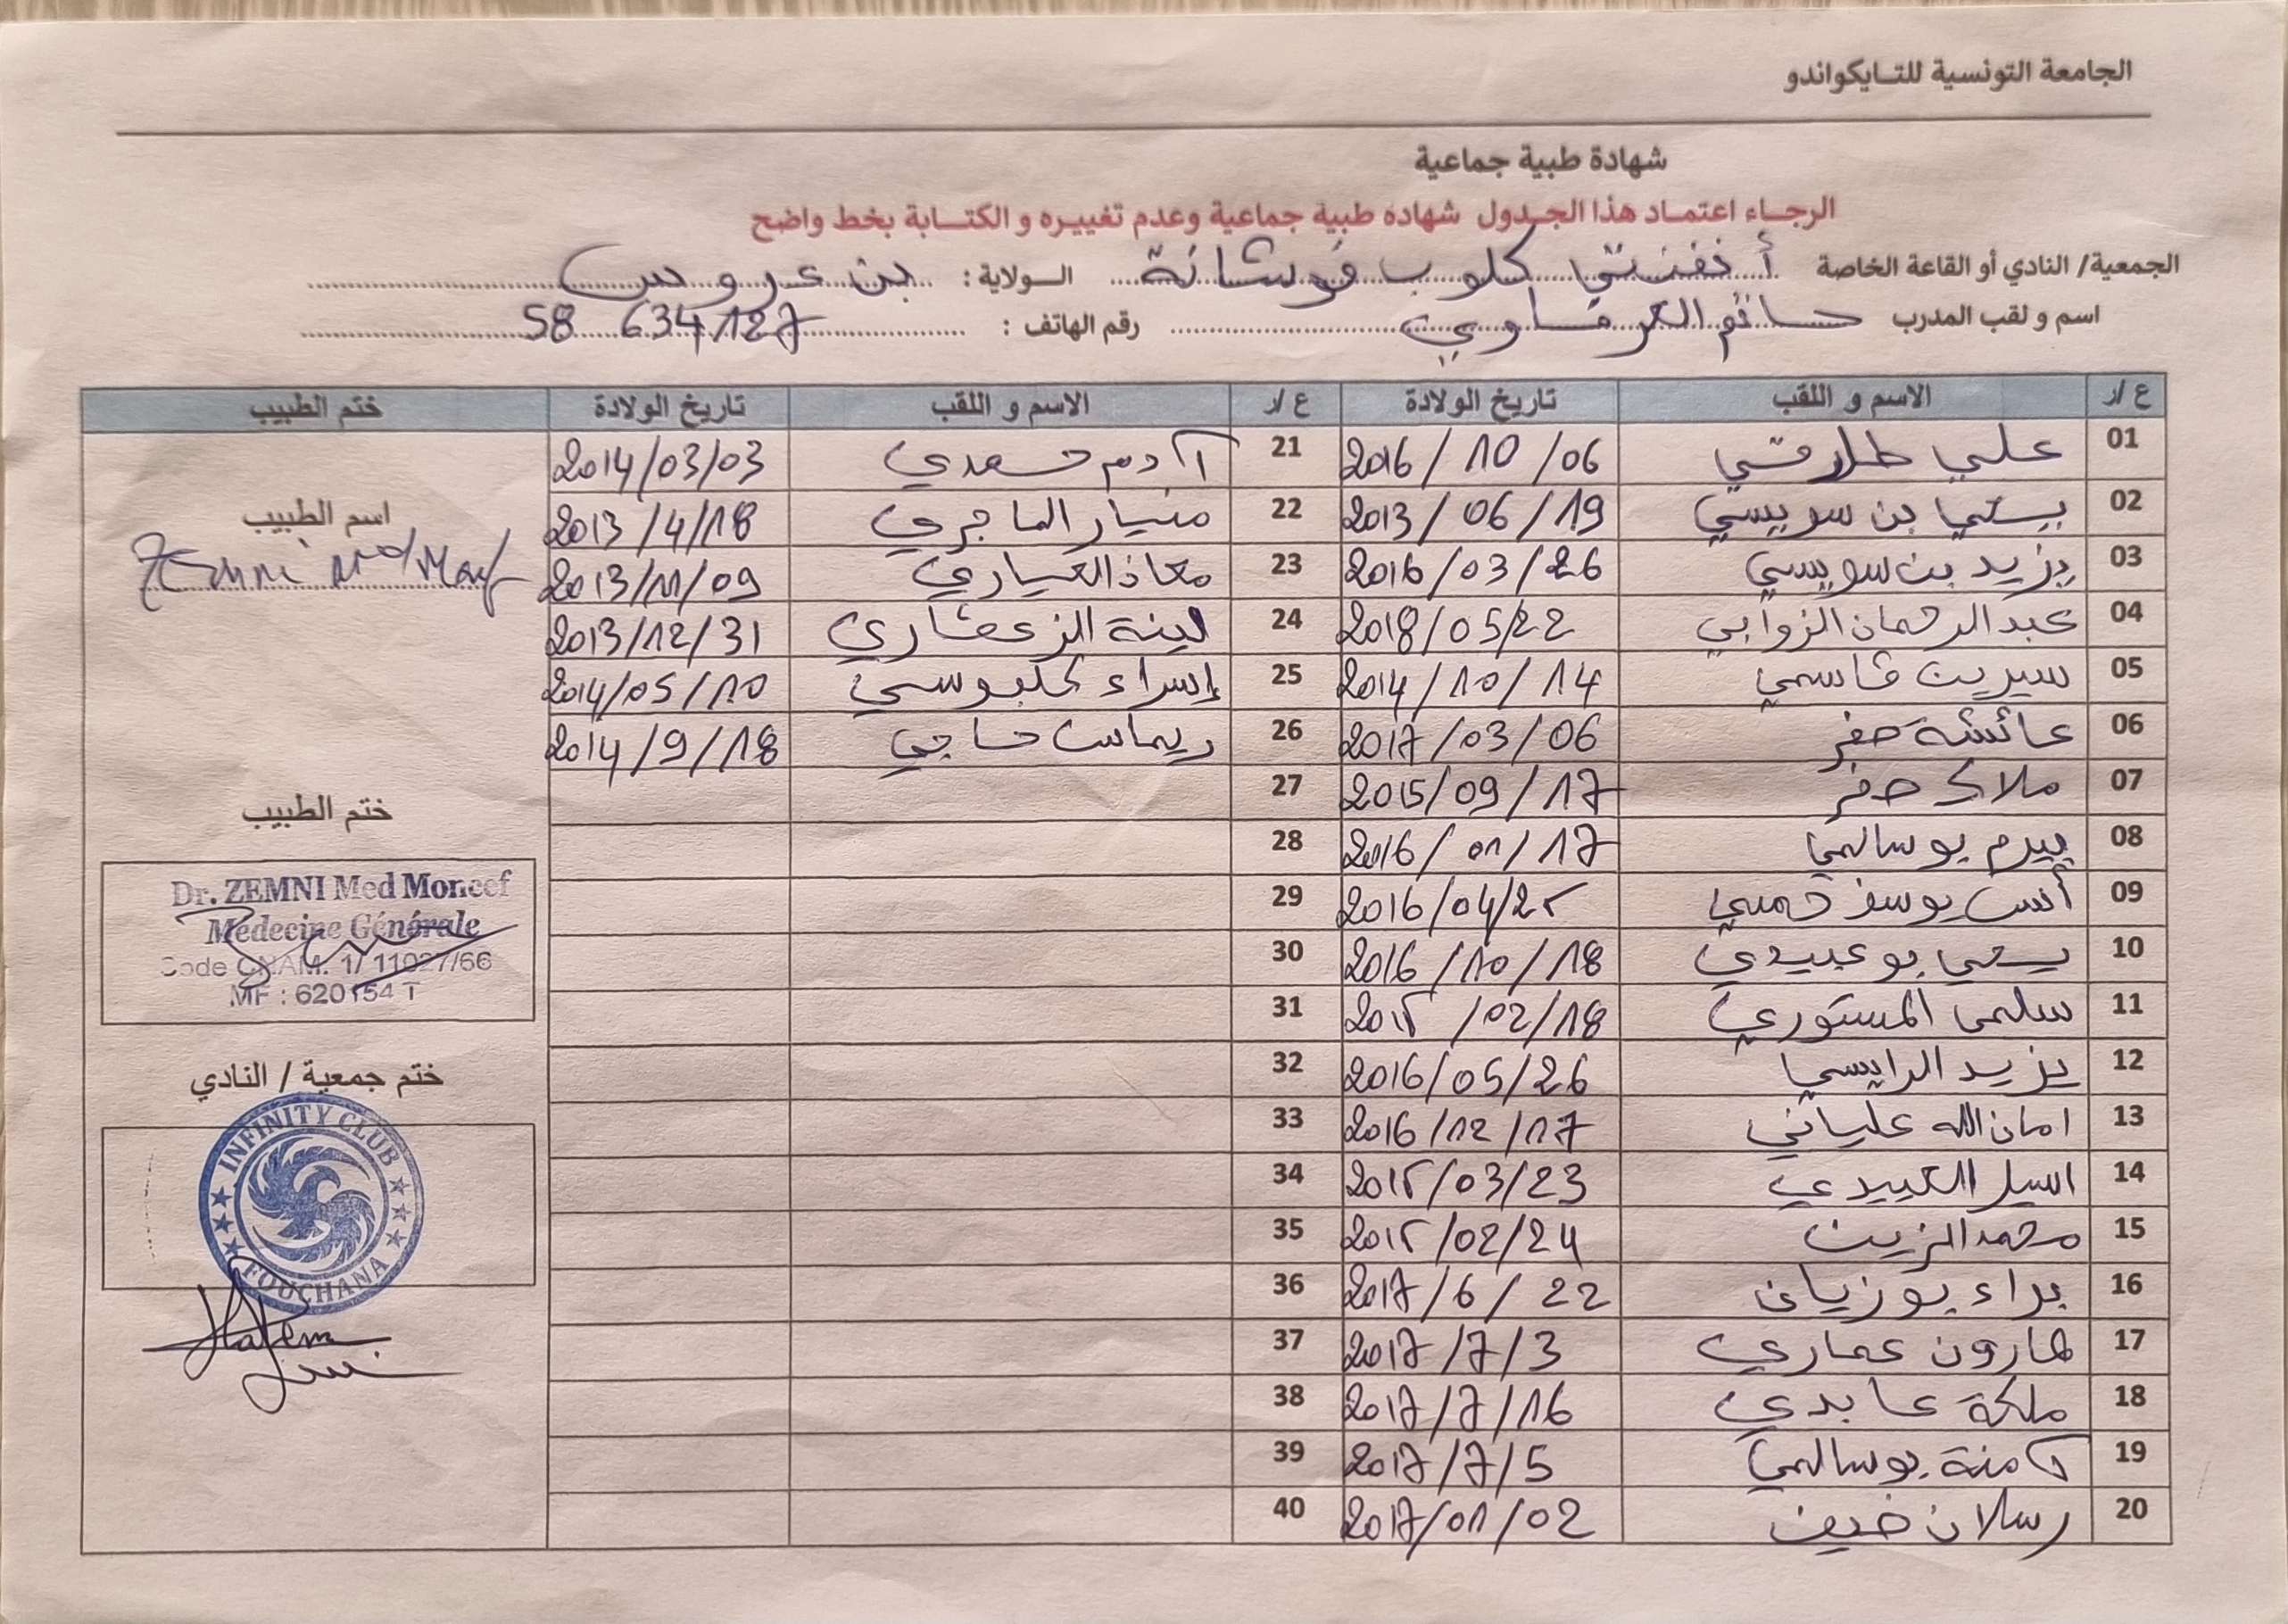 الجامعة التونسية للتـايكواندو
شهادة طبية جماعية
الرجـاء اعتمـاد هذا الجـدول شهاده طبية جماعية وعدم تغييـره و الكتـابة بخط واضح
الجمعية/ النادي أو القاعة الخاصة أنفنتي كلوب فوشانة الـولاية : بن عروس
اسم و لقب المدرب حاتم رقم الهاتف : 58 634 127
ع /ر الاسم و اللقب تاريخ الولادة ع /ر الاسم و اللقب تاريخ الولادة ختم الطبيب
01 علي طارقي 2016/10/06 21 آدم 2014/03/03
02 يحي بن سويسي 2013/06/19 22 منيار الماجري 2013/4/18 اسم الطبيب
03 يزيد بن سويسي 2016/03/26 23 معاذ العياري 2013/11/09 Zemni
04 عبد الرحمان الزوابي 2018/05/22 24 لينة الزعفاري 2013/12/31
05 سيرين قاسمي 2014/10/14 25 إسراء كلبوسي 2014/05/10
06 عائشة صفر 2017/03/06 26 ريماس حاجي 2014/9/18
07 ملاك صفر 2015/09/17 27
08 بيرم بوسالمي 2016/01/17 28 ختم الطبيب
09 أنس يوسف خميسي 2016/04/25 29 Dr. ZEMNI Med Moncef
Médecine Générale
10 يحي بوعبيدي 2016/10/18 30 Code CNAM: 1/ 11027/66
MF : 620154 T
11 سلمى المستوري 2015/02/18 31
12 يزيد الرايسي 2016/05/26 32 ختم جمعية / النادي
13 امان الله علياني 2016/12/17 33 INFINITY CLUB
14 اسيل العبيدي 2015/03/23 34
15 محمد الزين 2015/02/24 35
16 براء بوزيان 2017/6/22 36 FOUCHANA
17 هارون عماري 2017/7/3 37 Hatem
18 ملكة عابدي 2017/7/16 38
19 آمنة بوسالمي 2017/7/5 39
20 رسلان ضيف 2017/01/02 40